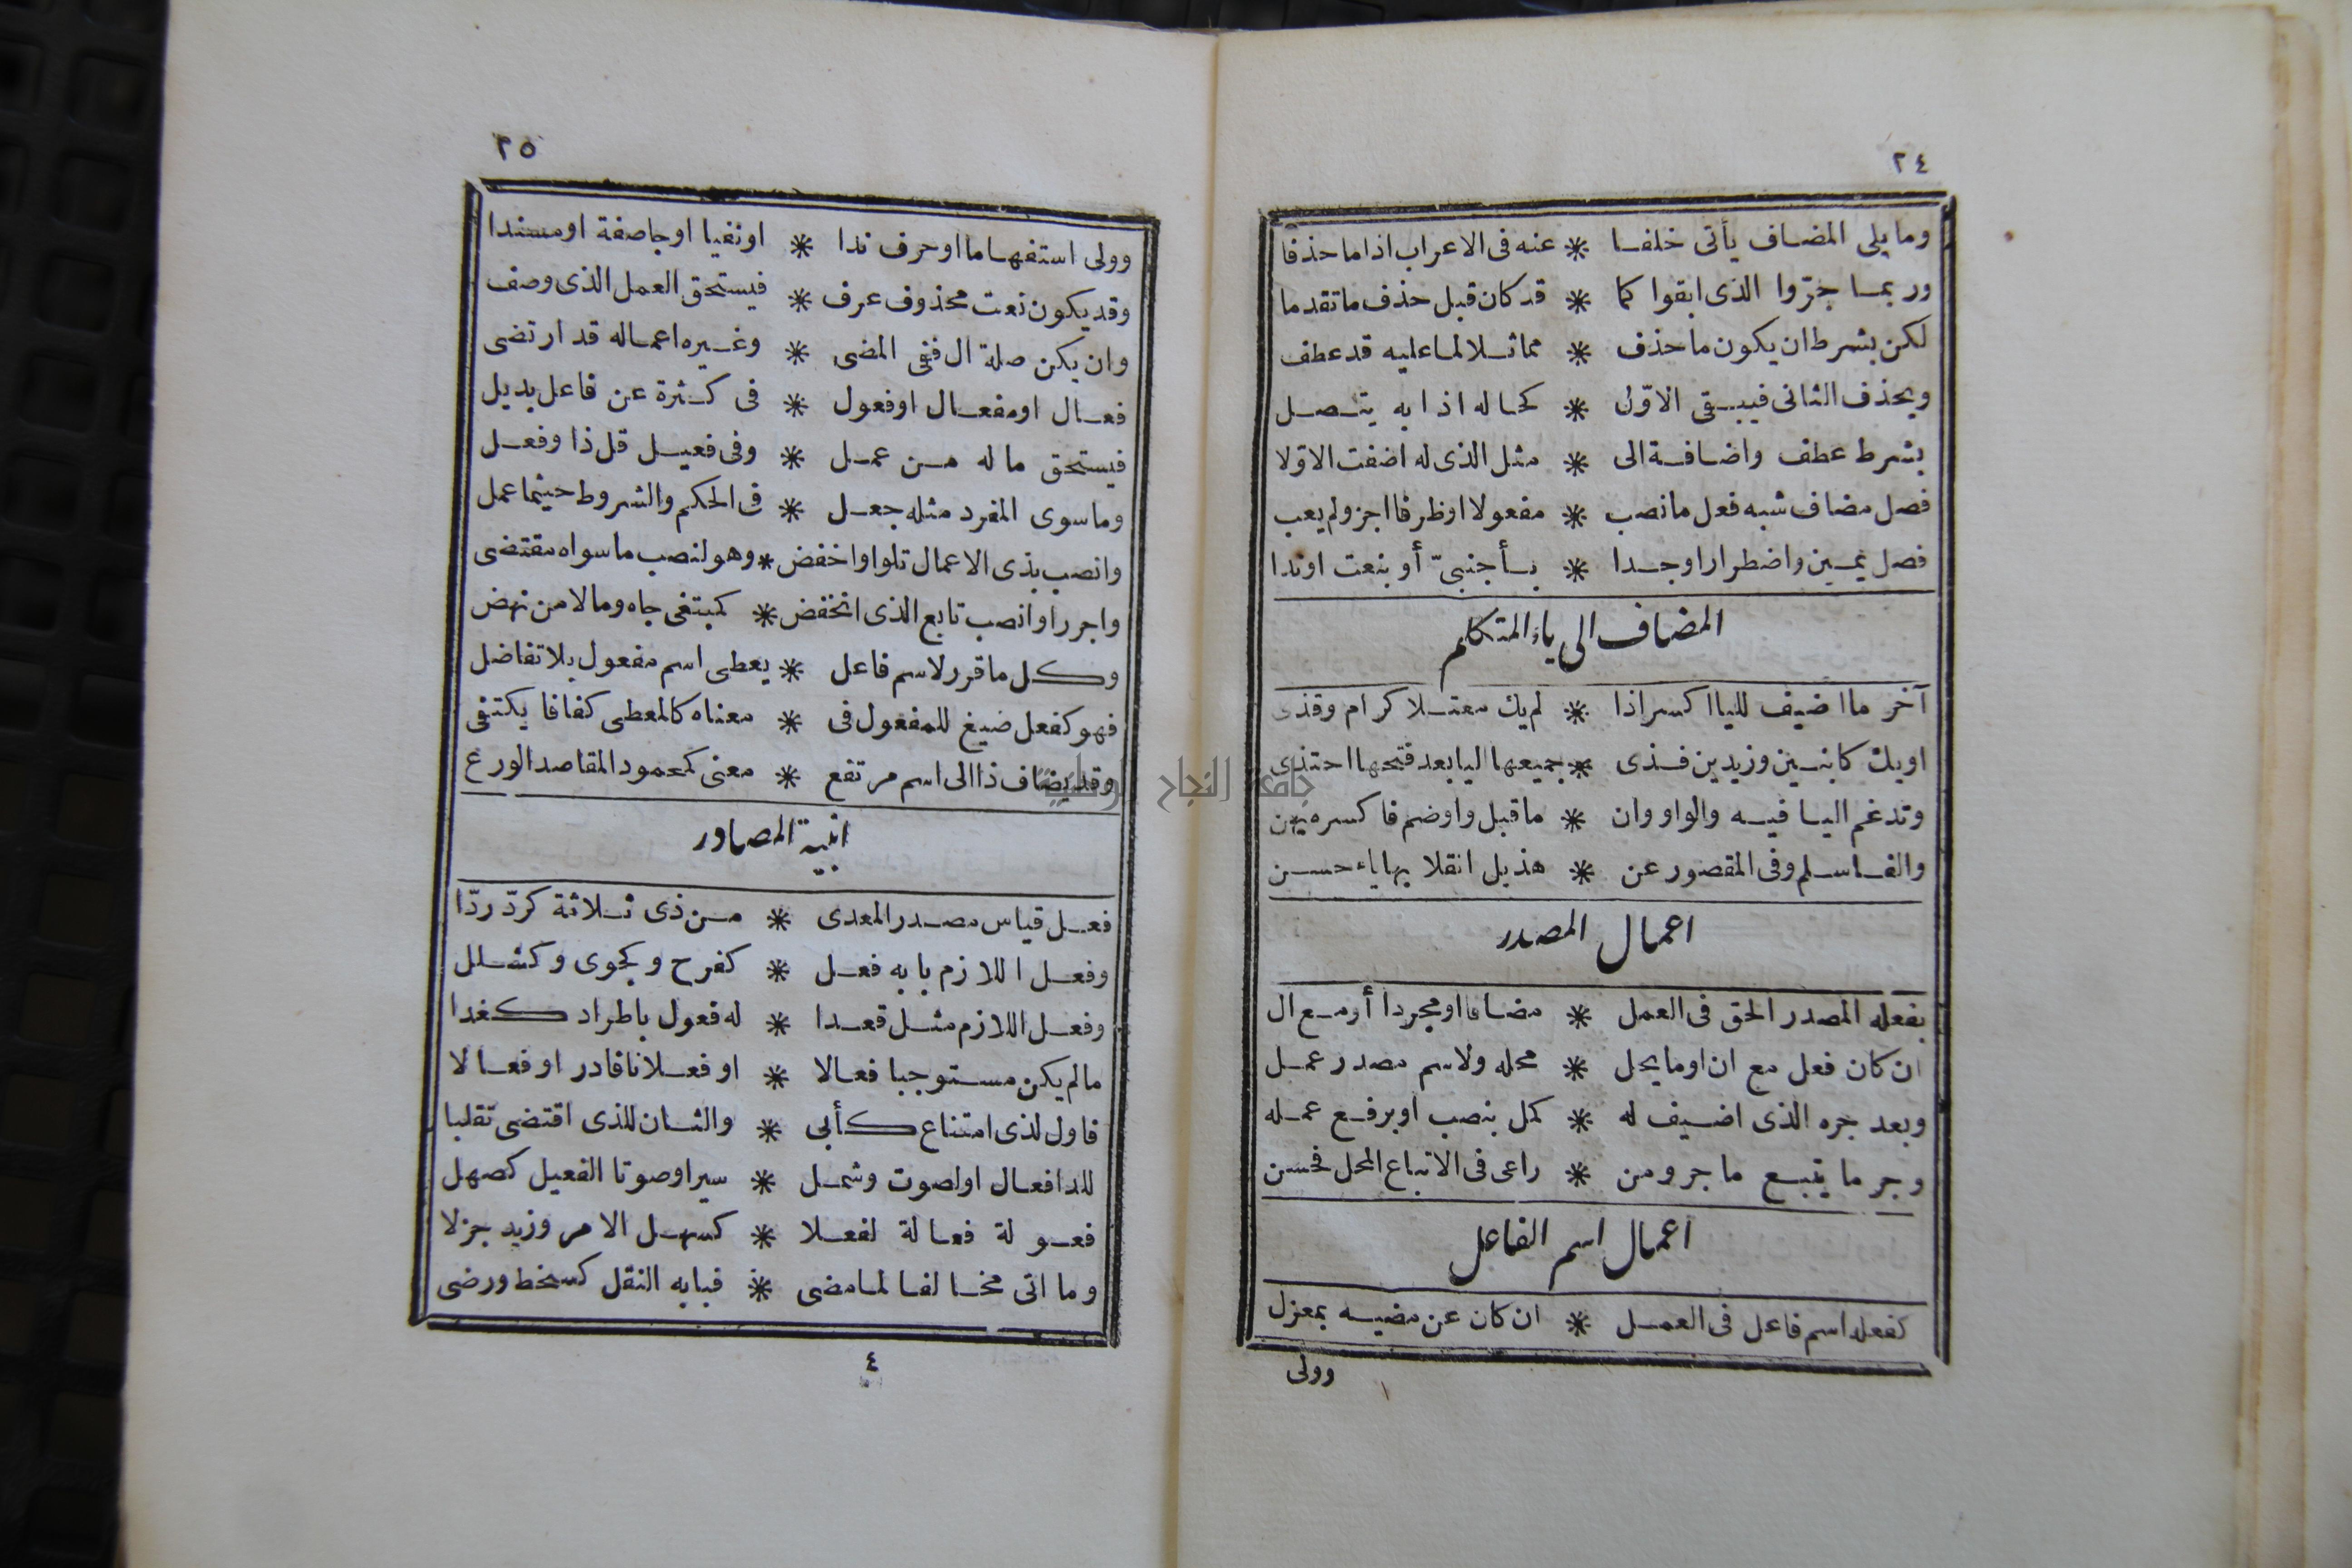 ٢٤
وما يلى المضاف يأتى خلفا * عنه فى الاعراب اذا ما حذفا
وربما جرّوا الذى ابقوا كما * قد كان قبل حذف ما تقدما
لكن بشرط ان يكون ما حذف * مماثلا لما عليه قد عطف
ويحذف الثانى فيبقى الاوّل * كحاله اذا به يتصل
بشرط عطف واضافة الى * مثل الذى له اضفت الاوّلا
فصل مضاف شبه فعل ما نصب * مفعولا او ظرفا اجز ولم يعب
فصل يمين واضطرارا وجدا * بأجنبىّ أو بنعت او ندا
المضاف الى ياء المتكلم
آخر ما اضيف لليا اكسر اذا * لم يك معتلا كرام وقذى
او يك كابنين وزيدين فذى * جميعها اليا بعد فتحها احتذى
وتدغم اليا فيه والواو وان * ما قبل واو ضم فاكسره يهن
والفا سلم وفى المقصور عن * هذيل انقلابها ياء حسن
اعمال المصدر
بفعله المصدر الحق فى العمل * مضافا او مجردا أو مع ال
ان كان فعل مع ان او ما يحل * محله ولاسم مصدر عمل
وبعد جره الذى اضيف له * كمل بنصب او برفع عمله
وجر ما يتبع ما جر ومن * راعى فى الاتباع المحل فحسن
اعمال اسم الفاعل
كفعله اسم فاعل فى العمل * ان كان عن مضيه بمعزل
وولى
٢٥
وولى استفهاما او حرف ندا * او نفيا او جا صفة او مسندا
وقد يكون نعت محذوف عرف * فيستحق العمل الذى وصف
وان يكن صلة ال ففى المضى * وغيره اعماله قد ارتضى
فعال او مفعال او فعول * فى كثرة عن فاعل بديل
فيستحق ما له من عمل * وفى فعيل قل ذا وفعل
وما سوى المفرد مثله جعل * فى الحكم والشروط حيثما عمل
وانصب بذى الاعمال تلوا واخفض * وهو لنصب ما سواه مقتضى
واجرر او انصب تابع الذى انخفض * كمبتغى جاه ومالا من نهض
وكل ما قرر لاسم فاعل * يعطى اسم مفعول بلا تفاضل
فهو كفعل صيغ للمفعول فى * معناه كالمعطى كفافا يكتفى
وقد يضاف ذا الى اسم مرتفع * معنى كمحمود المقاصد الورع
ابنية المصادر
فعل قياس مصدر المعدى * من ذى ثلاثة كردّ ردّا
وفعل اللازم بابه فعل * كفرح وكجوى وكشلل
وفعل اللازم مثل قعدا * له فعول باطراد كغدا
مالم يكن مستوجبا فعالا * او فعلانا فادر او فعالا
فاول لذى امتناع كأبى * والثان للذى اقتضى تقلبا
للدا فعال او لصوت وشمل * سيرا وصوتا الفعيل كصهل
فعولة فعالة لفعلا * كسهل الامر وزيد جزلا
وما اتى مخالفا لما مضى * فبابه النقل كسخط ورضى
٤
جامعة النجاح الوطنية